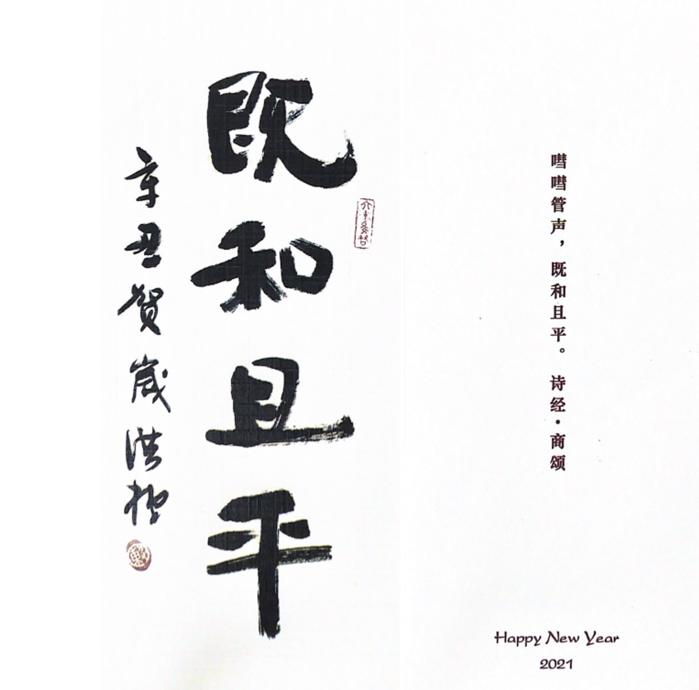 既和且平
辛丑贺岁洪
嘒嘒管声，既和且平。 诗经·商颂
Happy New Year
2021